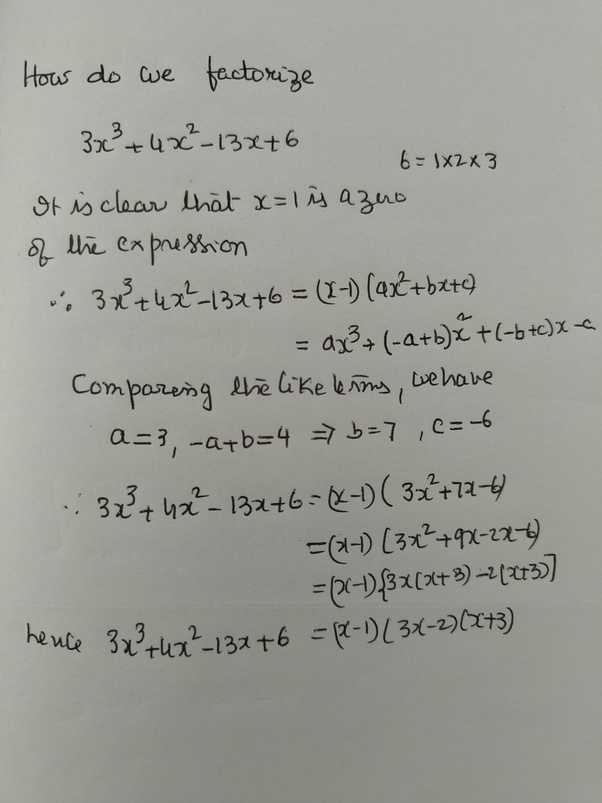 How do we factorize
3x³+4x²-13x+6
6=1x2x3
It is clear that x=1 is a zero
of the expression
∴ 3x³+4x²-13x+6 = (x-1)(ax²+bx+c)
= ax³+(-a+b)x²+(-b+c)x-c
Comparing the like terms, we have
a=3, -a+b=4 ⇒ b=7, c=-6
∵ 3x³+4x²-13x+6=(x-1)(3x²+7x-6)
=(x-1)(3x²+9x-2x-6)
=(x-1){3x(x+3)-2(x+3)]
hence 3x³+4x²-13x+6 =(x-1)(3x-2)(x+3)